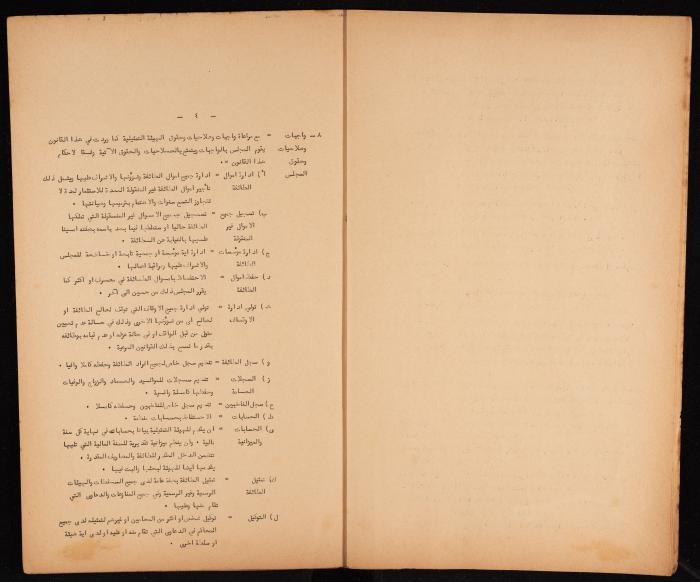 — ٤ —
٨ — واجبات = مع مراعاة واجبات وصلاحيات وحقوق الهيئة التمثيلية كما وردت في هذا القانون
وصلاحيات يقوم المجلس بالواجبات ويتمتع بالصلاحيات والحقوق الآتية وفقا لاحكام
وحقوق هذا القانون .
المجلس أ ) ادارة اموال = ادارة جميع اموال الطائفة وشؤونها والاشراف عليها ويشمل ذلك
الطائفة تأجير اموال الطائفة غير المنقولة المعدة للاستثمار لمدة لا
تتجاوز التسع سنوات والاهتمام بترميمها وصيانتها .
ب) تسجيل جميع = تسجيل جميع الاموال غير المنقولة التي تملكها
الاموال غير الطائفة حاليا او ستملكها فيما بعد باسمه بصفته امينا
المنقولة عليها بالنيابة عن الطائفة .
ج) ادارة مؤسسات = ادارة اية مؤسسة او جمعية تابعة او خاضعة للمجلس
الطائفة والاشراف عليها ومراقبة اعمالها .
د ) حفظ اموال = الاحتفاظ باموال الطائفة في مصرف او اكثر كما
الطائفة يقرر المجلس ذلك من حين الى آخر .
هـ ) تولي ادارة = تولي ادارة جميع الاوقاف التي توقف لصالح الطائفة او
الاوقاف لصالح اي من شؤونها الاخرى وذلك في حالة عدم تعيين
متول من قبل الواقف او في حالة عزله او عدم قيامه بوظائفه
بقدر ما تسمح بذلك القوانين المرعية .
و ) سجل الطائفة = تقديم سجل خاص لجميع افراد الطائفة وحفظه كاملا وافيا .
ز ) السجلات = تقديم سجلات للمواليد والعماد والزواج والوفيات
الخاصة وحفظها كاملة وافية .
ح ) سجل الناخبين = تقديم سجل خاص للناخبين وحفظه كاملا .
ط ) الحسابات = الاحتفاظ بحسابات منظمة .
ى) الحسابات = ان يقدم للهيئة التمثيلية بيانا بحساباته في نهاية كل سنة
والميزانية مالية . وان ينظم ميزانية تقديرية للسنة المالية التي تليها
تتضمن الدخل المقدر للطائفة والمصاريف المقدرة .
يقدمها ايضا للهيئة لبحثها والبت فيها .
ك) تمثيل = تمثيل الطائفة بصفة عامة لدى جميع السلطات والهيئات
الطائفة الرسمية وغير الرسمية وفي جميع المنازعات والدعاوى التي
تقام منها وعليها .
ل ) التوكيل = توكيل شخص او اكثر من المحامين او غيرهم لتمثيله لدى جميع
المحاكم في الدعاوى التي تقام منه او عليه او لدى اية هيئة
او سلطة اخرى .